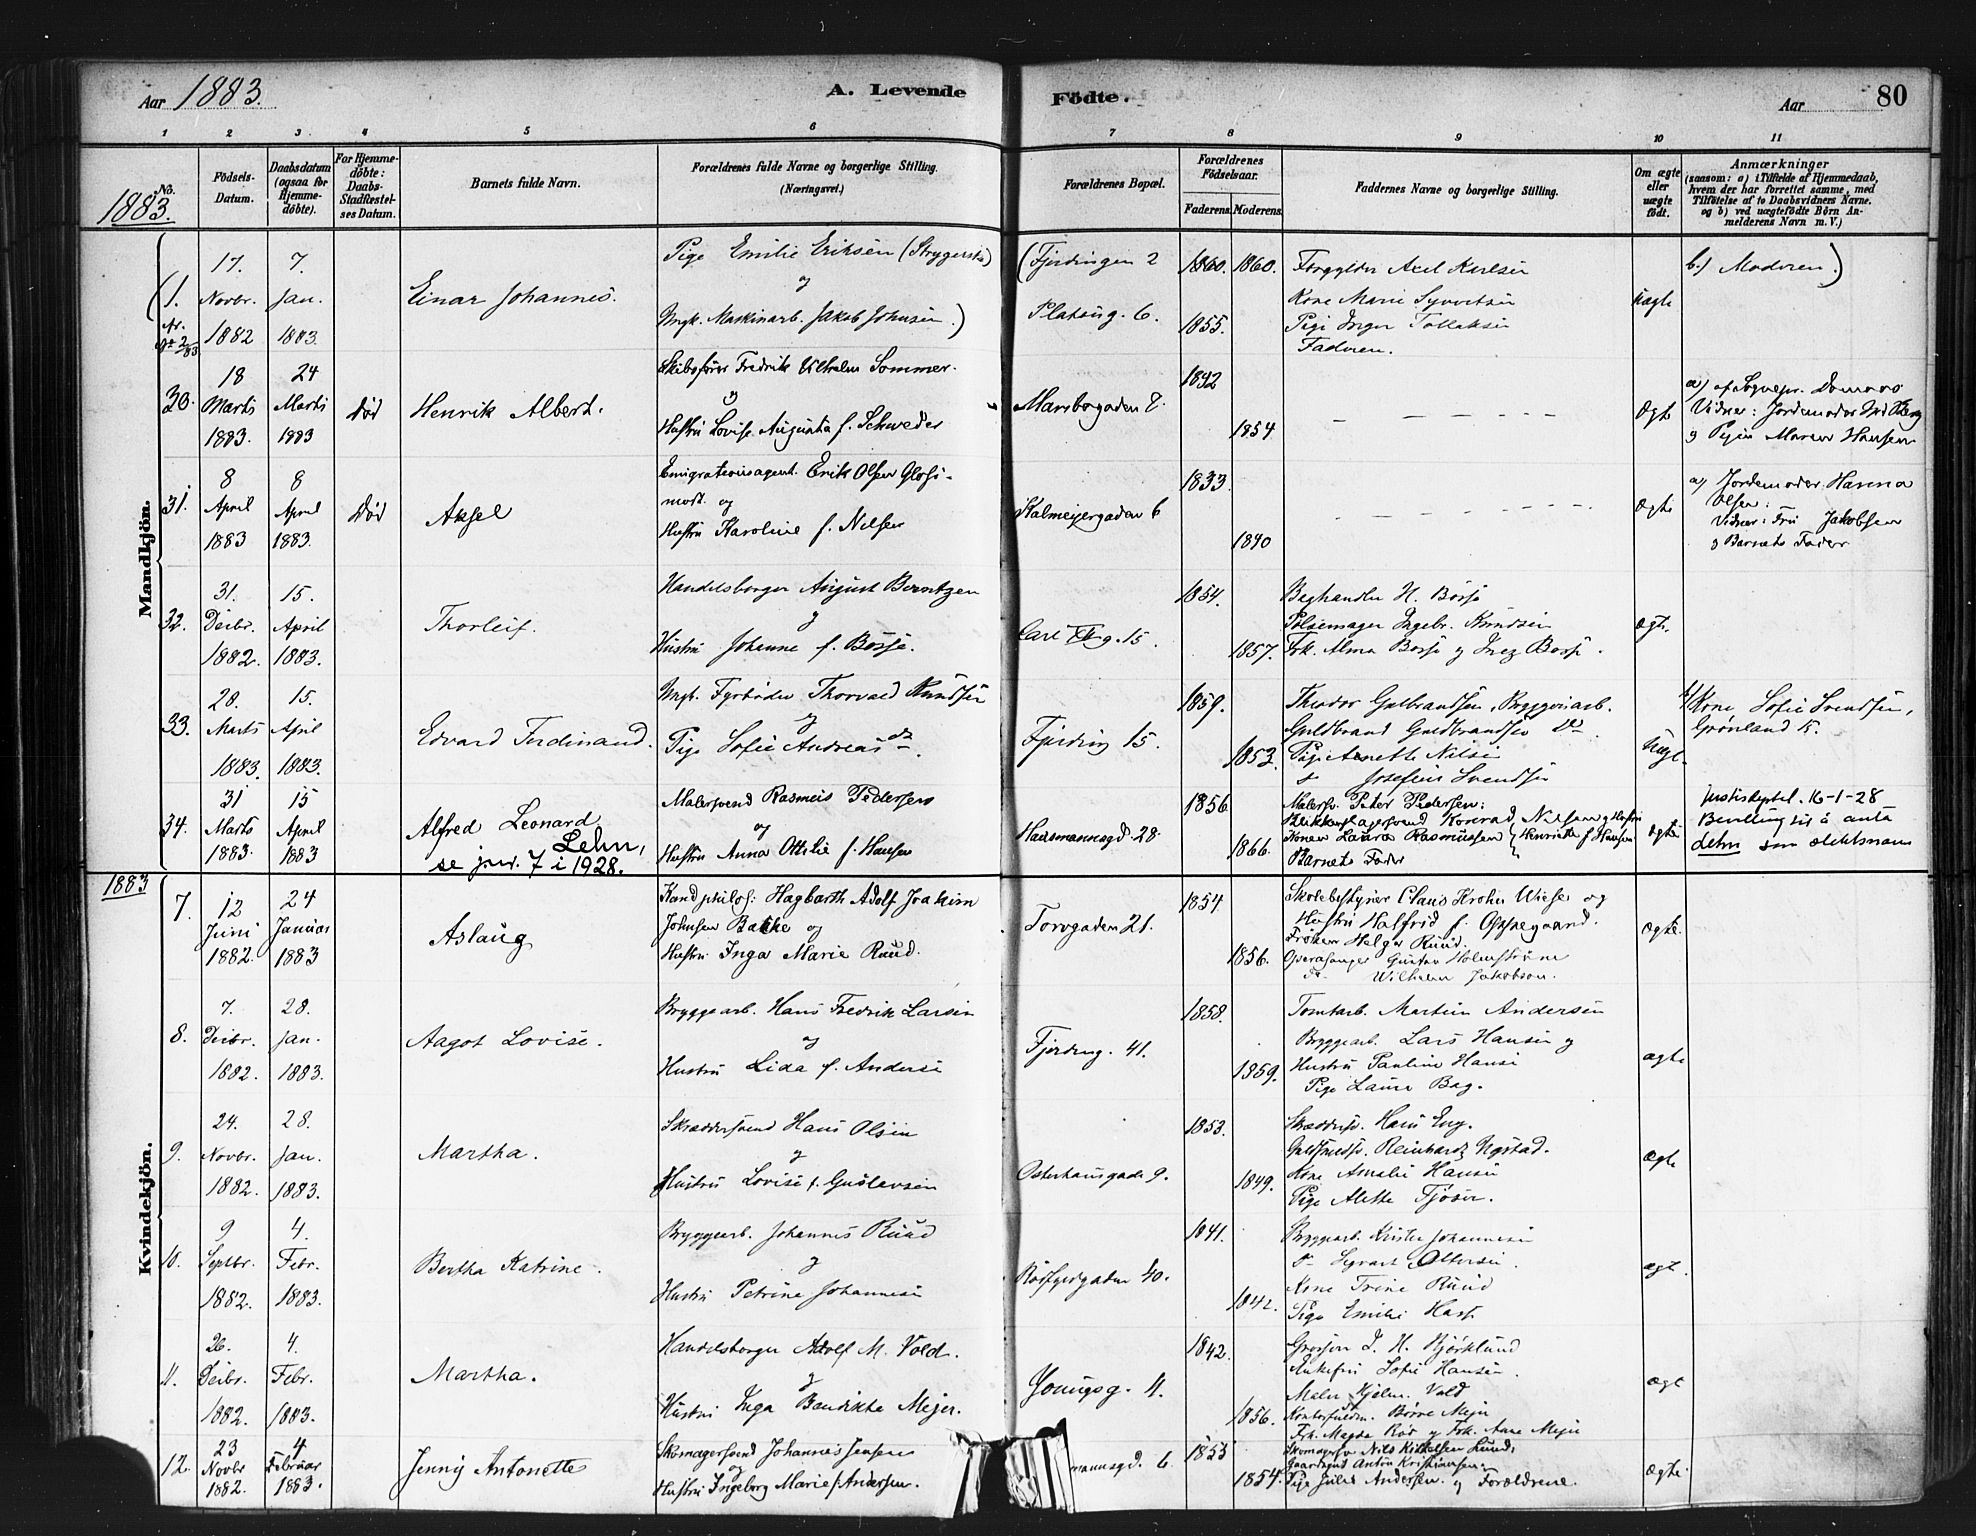 Aar 1883.
A. Levende
Födte.
Aar
80
1 2 3 4 5 6 7 8 9 10 11
No.
1883.
Födsels-
Datum.
Daabsdatum
(ogsaa for
Hjemme-
döbte).
For Hjemme-
döbte:
Daabs-
Stadfæstel-
ses Datum.
Barnets fulde Navn.
Forældrenes fulde Navne og borgerlige Stilling.
(Næringsvei.)
Forældrenes Bopæl.
Forældrenes
Födselsaar.
Faderens.
Moderens.
Faddernes Navne og borgerlige Stilling.
Om ægte
eller
uægte
födt.
Anmærkninger
(saasom: a) i Tilfælde af Hjemmedaab,
hvem der har forrettet samme, med
Tilföielse af to Daabsvidners Navne.
og b) ved uægtefödte Börn An-
melderens Navn m. V.)
Mandkjön.
(1.
17. Novbr. 1882
7. Jan. 1883.
Einar Johannes.
Pige Emilie Eriksen (Strygerske)
og
Ungk. Maskinarb. Jakob Johnsen.)
(Fjerdingen 2
Platoug. 6.
1860. 1860.
1855.
Forgylder Axel Karlsen
Kone Marie Syvertsen
Pige Inger Tollaksen
Faderen.
uægte
b.) Moderen.)
30.
18 Marts 1883.
24 Marts 1883
död
Henrik Albert.
Skibsförer Fredrik Vilhelm Sommer.
og
Hustru Lovise Augusta f. Schweder
Maribogaden 8.
1842
1854
Ægte
a) af Sognepr.
Vidner: Jordemoder
og Pigen Maren Hansen
31.
8 April 1883
8 April 1883.
död
Aksel
Emigrationsagent. Erik Olsen Glosi-
modt. og
Hustru Karoline f. Nilsen
Kalmeyergaden 6
1833
1840
Ægte
a) Jordemoder Hanna
Olsen:
Vidner: Fru Jakobsen
og Barnets Fader
32.
31. Decbr. 1882.
15. April 1883.
Thorleif.
Handelsborger August Berntzen
og
Hustru Johanne f. Börsje.
Carl XII g. 15.
1854.
1857.
Baghandler H. Börsje
Pölsemager Ingebr. Knudsen
Frk. Alma Börsje og Inez Börsje.
ægte
33.
28. Marts 1883.
15. April 1883.
Edvard Ferdinand.
Ungk. Fyrböder Thorvald Knudsen
og
Pige Sofie Andreasdr.
Fjerding 15.
1859.
1853.
Theodor Gulbrandsen, Bryggeriarb.
Guldbrand Guldbrandsen Do
Pige Anette Nilsen
Josefine Svendsen
Uægte
b/ Kone Sofie Svendsen,
Grönland 15.
34.
31 Marts 1883
15 April 1883
Alfred Leonard
Lehn,
se jnr. 7 i 1928.
Malersvend Rasmus Pedersen
og
Hustru Anna Ottilie f. Hansen
Hausmannsgd. 28.
1856
1866.
Malersv. Peter Pedersen:
Blikkenslagersvend Konrad Nilsen og Hustru
Konen Laura Rasmussen Henriette f. Hansen
Barnets Fader
ægte
Justiskptel. 16-1-28
Bevilling til å anta
Lehn som slektsnavn
1883
Kvindekjön.
7.
12 Juni 1882.
24 Januar 1883
Aslaug
Kand philos: Hagbarth Adolf Joakim
Johnsen Bakke og
Hustru Inga Marie Ruud.
Torvgaden 21.
1854.
1856.
Skolebestyrer Claus Krohn Wiese og
Hustru Halfrid f. Oppegaard.
Fröken Helga Ruud.
Operasanger Gustav Holmström
Wilhelm Jakobson.
ægte.
8.
7. Decbr. 1882.
28. Jan. 1883.
Aagot Lovise.
Bryggearb. Hans Fredrik Larsen
og
Hustru Lida f. Andersen
Fjerding. 41.
1858.
1859.
Tomtarb. Martin Andersen
Bryggearb. Lars Hansen og
Hustru Pauline Hansen
Pige Laura Bag.
ægte
9.
24. Novbr. 1882.
28. Jan. 1883.
Martha.
Skræddersvend Hans Olsen
og
Hustru Lovise f. Gustavsen
Osterhausgade 9.
1853.
1849.
Skræddersv. Hans Eng.
Guldsmeds. Reinhardt Ugstad.
Kone Amalie Hansen
Pige Alette Fjøsen.
ægte
10.
9 Septbr. 1882.
4. Febr. 1883.
Bertha Katrine.
Bryggearb. Johannes Ruud
og
Hustru Petrine Johannesen
40.
1841.
1842.
Bryggearb. Krister Johannesen
Kone Trine Ruud
Pige Emilie
ægt.
11.
26. Decbr. 1882.
4. Febr. 1883.
Martha.
Handelsborger Adolf M. Vold.
og
Hustru Inga Bendikte Mejer.
Youngsg. 4.
1842.
1856.
Grosser J. H. Björklund
Enkefru Sofie Hansen.
Maler Hjelm. Vold
Kontorfuldm. Börre Mejer
Frk. Magda og Frk. Anne Mejer
ægt
12.
23 Novbr 1882.
4 Februar 1883.
Jenny Antonette
Skomagersvend Johannes Jensen
og
Hustru Ingeborg Marie f. Andersen.
mannsgd. 6.
1853
1854.
Skomagersv Nils Kittelsen Lund,
Gaardsgut Anton Kristiansen.
Pige Julie Andersen. og Forældrene.
ægte.